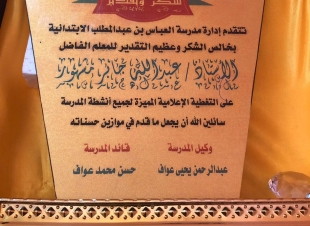 شكر وتقدير
تتقدم إدارة مدرسة العباس بن عبدالمطلب الابتدائية
بخالص الشكر وعظيم التقدير للمعلم الفاضل
الاستاذ / عبدالله جابر مشهور
على التغطية الإعلامية المميزة لجميع أنشطة المدرسة
سائلين الله أن يجعل ما قدم في موازين حسناته
وكيل المدرسة قائد المدرسة
عبدالرحمن يحيى عواف حسن محمد عواف